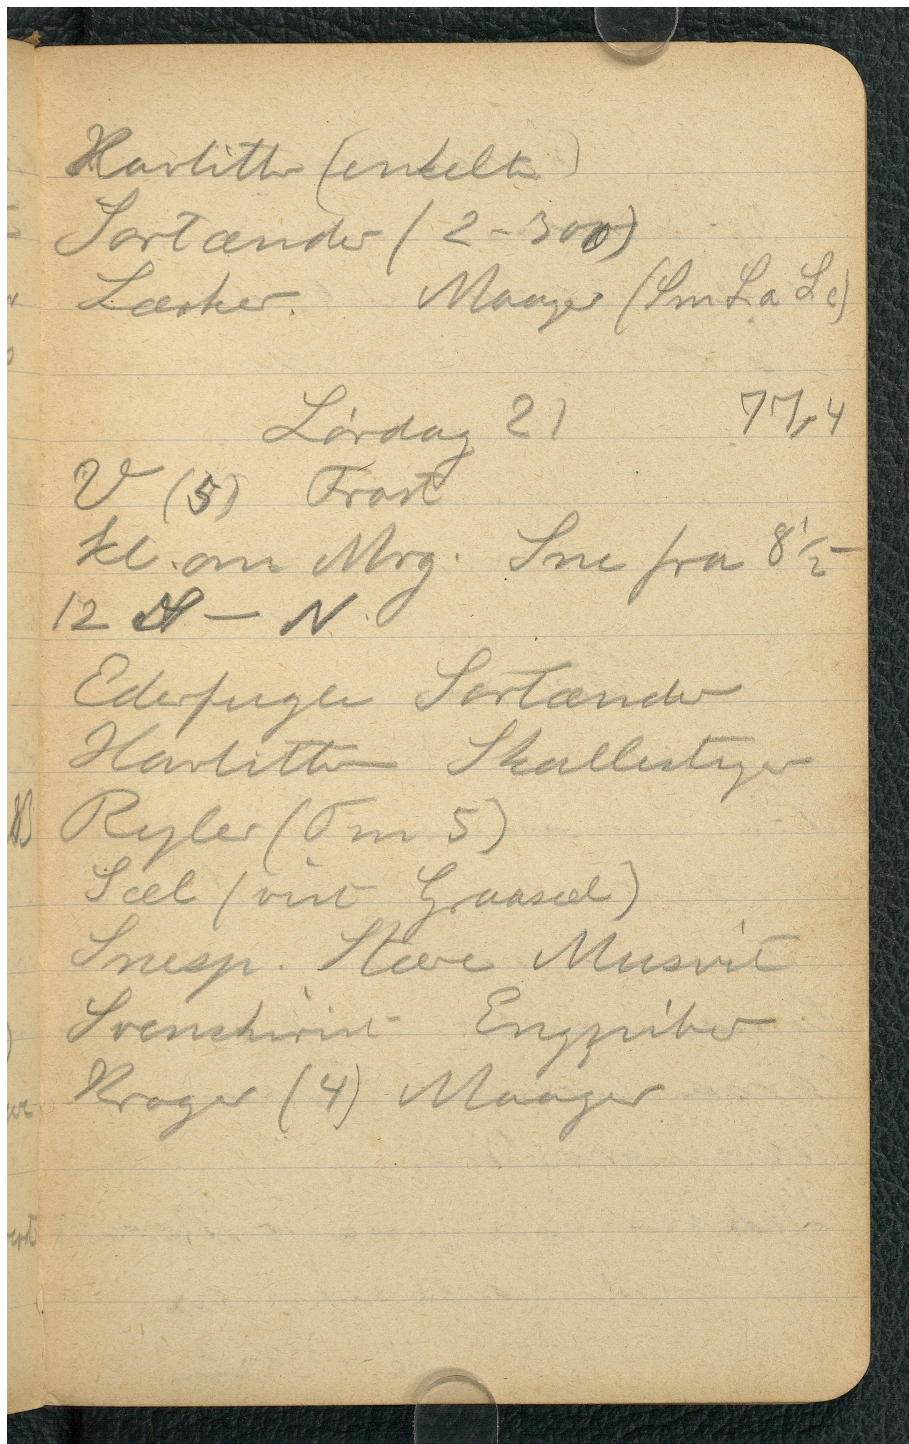 Havlitter (enkelte)
Sortænder (2-300)
Lærker. Maager (Sm La Lc)
Lørdag 21 77,4
V (5) Frost
kl. om Mrg. Sne fra 8½-
12 - N.
Ederfugle Sortænder
Havlitter Skallesluger
Ryler (Tm 5)
Sæl (vist Graasæl)
Snesp. Stære Musvit
Svenskirist Engpiber
Krager (4) Maager